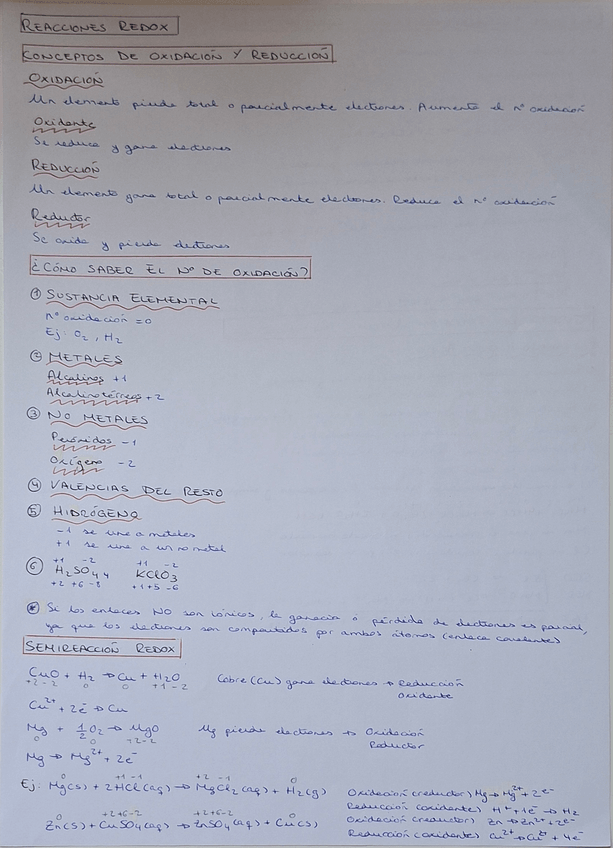 REACCIONES REDOX
CONCEPTOS DE OXIDACIÓN Y REDUCCIÓN
OXIDACIÓN
Un elemento pierde total o parcialmente electrones. Aumenta el nº oxidación
Oxidante
Se reduce y gana electrones
REDUCCIÓN
Un elemento gana total o parcialmente electrones. Reduce el nº oxidación
Reductor
Se oxida y pierde electrones
¿CÓMO SABER EL Nº DE OXIDACIÓN?
① SUSTANCIA ELEMENTAL
nº oxidación = 0
Ej: O₂, H₂
② METALES
Alcalinos +1
Alcalinotérreos +2
③ NO METALES
Peróxidos -1
Oxígeno -2
④ VALENCIAS DEL RESTO
⑤ HIDRÓGENO
-1 se une a metales
+1 se une a un no metal
+1 -2 +1 -2
⑥ H₂SO₄ KClO₃
+2 +6 -8 +1 +5 -6
Si los enlaces NO son iónicos, la ganancia o pérdida de electrones es parcial,
ya que los electrones son compartidos por ambos átomos (enlace covalente)
SEMIREACCIÓN REDOX
CuO + H₂ → Cu + H₂O Cobre (Cu) gana electrones → Reducción
+2 -2 0 0 +1 -2 Oxidante
Cu²⁺ + 2e⁻ → Cu
Mg + 1/2 O₂ → MgO Mg pierde electrones → Oxidación
0 0 +2 -2 Reductor
Mg → Mg²⁺ + 2e⁻
0 +1 -1 +2 -1 0
Ej: Mg(s) + 2HCl(aq) → MgCl₂(aq) + H₂(g) Oxidación (reductor) Mg → Mg²⁺ + 2e⁻
Reducción (oxidante) H⁺ + 1e⁻ → H₂
0 +2 +6 -2 +2 +6 -2 0
Zn(s) + CuSO₄(aq) → ZnSO₄(aq) + Cu(s) Oxidación (reductor) Zn → Zn²⁺ + 2e⁻
Reducción (oxidante) Cu²⁺ → Cu + 4e⁻